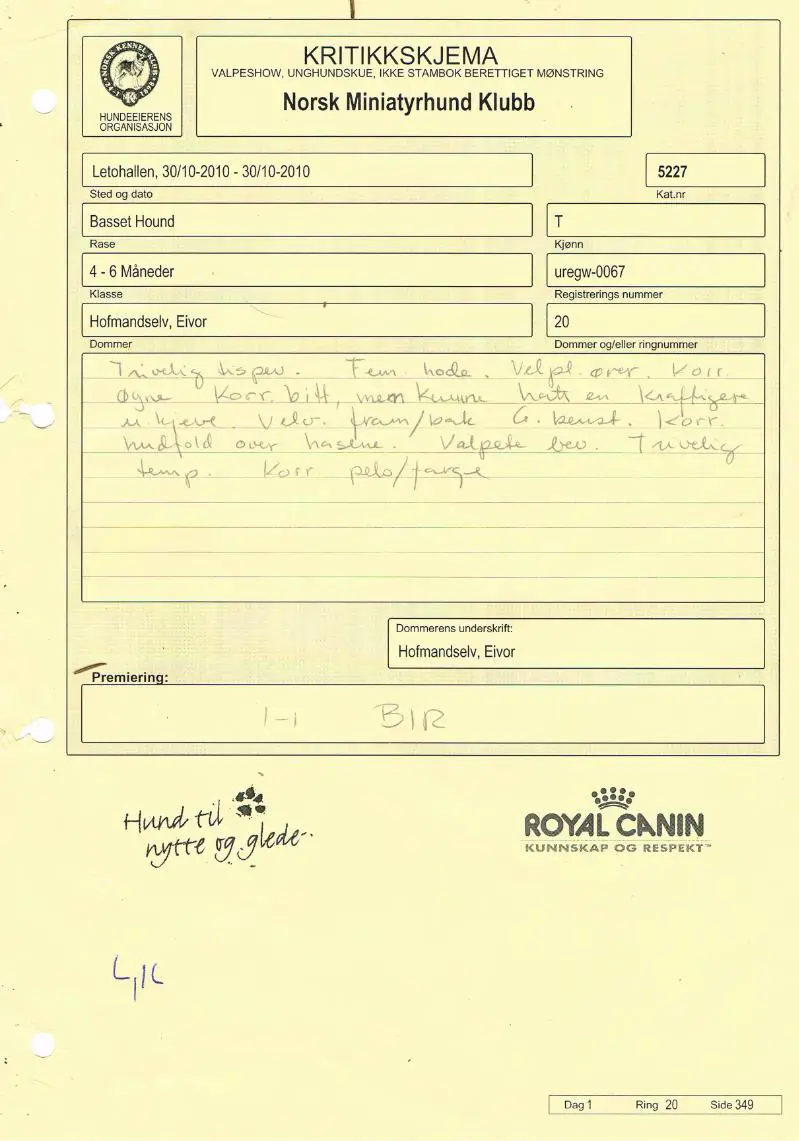 NORSK KENNEL KLUB
1898
HUNDEEIERENS
ORGANISASJON
KRITIKKSKJEMA
VALPESHOW, UNGHUNDSKUE, IKKE STAMBOK BERETTIGET MØNSTRING
Norsk Miniatyrhund Klubb
Letohallen, 30/10-2010 - 30/10-2010
5227
Sted og dato
Kat.nr
Basset Hound
T
Rase
Kjønn
4 - 6 Måneder
uregw-0067
Klasse
Registrerings nummer
Hofmandselv, Eivor
20
Dommer
Dommer og/eller ringnummer
Trivelig tispev. Fem hode. Velpl. ører. Korr.
Øyne Korr. bitt, men kunne hatt en kraftigere
u kjeve. Velv. fram/bak G. benst. Korr.
hudfold over hasene. Valpete bev. Trivelig
temp. Korr pels/farge
Dommerens underskrift:
Hofmandselv, Eivor
Premiering:
1-1 BIR
Hund til
nytte og glede..
ROYAL CANIN
KUNNSKAP OG RESPEKT™
Dag 1 Ring 20 Side 349